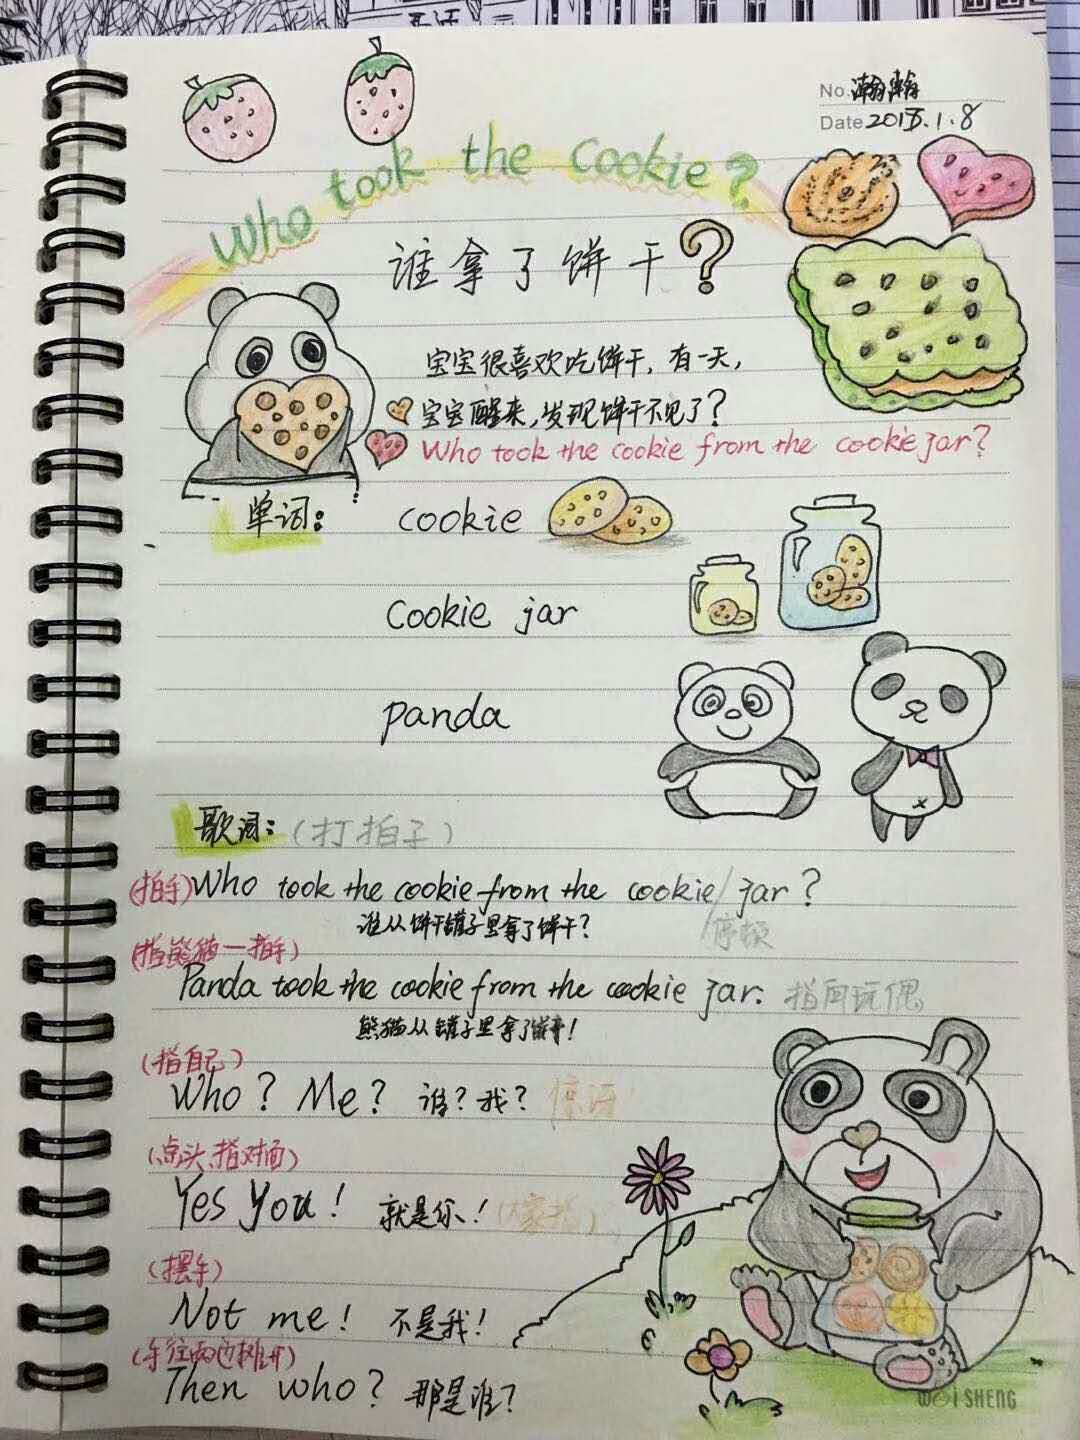 No. 瀚瀚
Date 2018.1.8
Who took the Cookie?
谁拿了饼干?
宝宝很喜欢吃饼干，有一天，
宝宝醒来，发现饼干不见了？
Who took the cookie from the cookie jar?
单词： cookie
cookie jar
panda
歌词：（打拍子）
(拍手) Who took the cookie from the cookie / jar?
谁从饼干罐子里拿了饼干？ 停顿
(指熊猫一拍手)
Panda took the cookie from the cookie jar. 指向玩偶
熊猫从罐子里拿了饼干！
(指自己)
Who? Me? 谁？我？ 惊讶
(点头、指对面)
Yes you! 就是你！(大家指)
(摆手)
Not me! 不是我！
(手往两边摊开)
Then who? 那是谁？
WEi SHENG